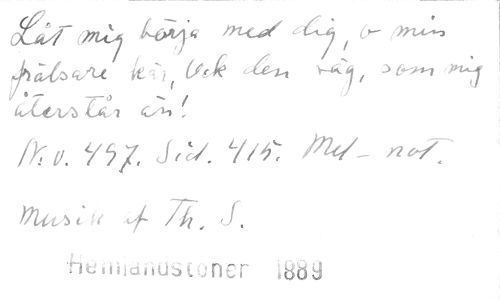 Låt mig börja med dig, o min
frälsare kär, Och den väg, som mig
återstår än!
N:o. 497. Sid. 415. Mel-not.
Musik af Th. S.
Hemlandstoner 1889